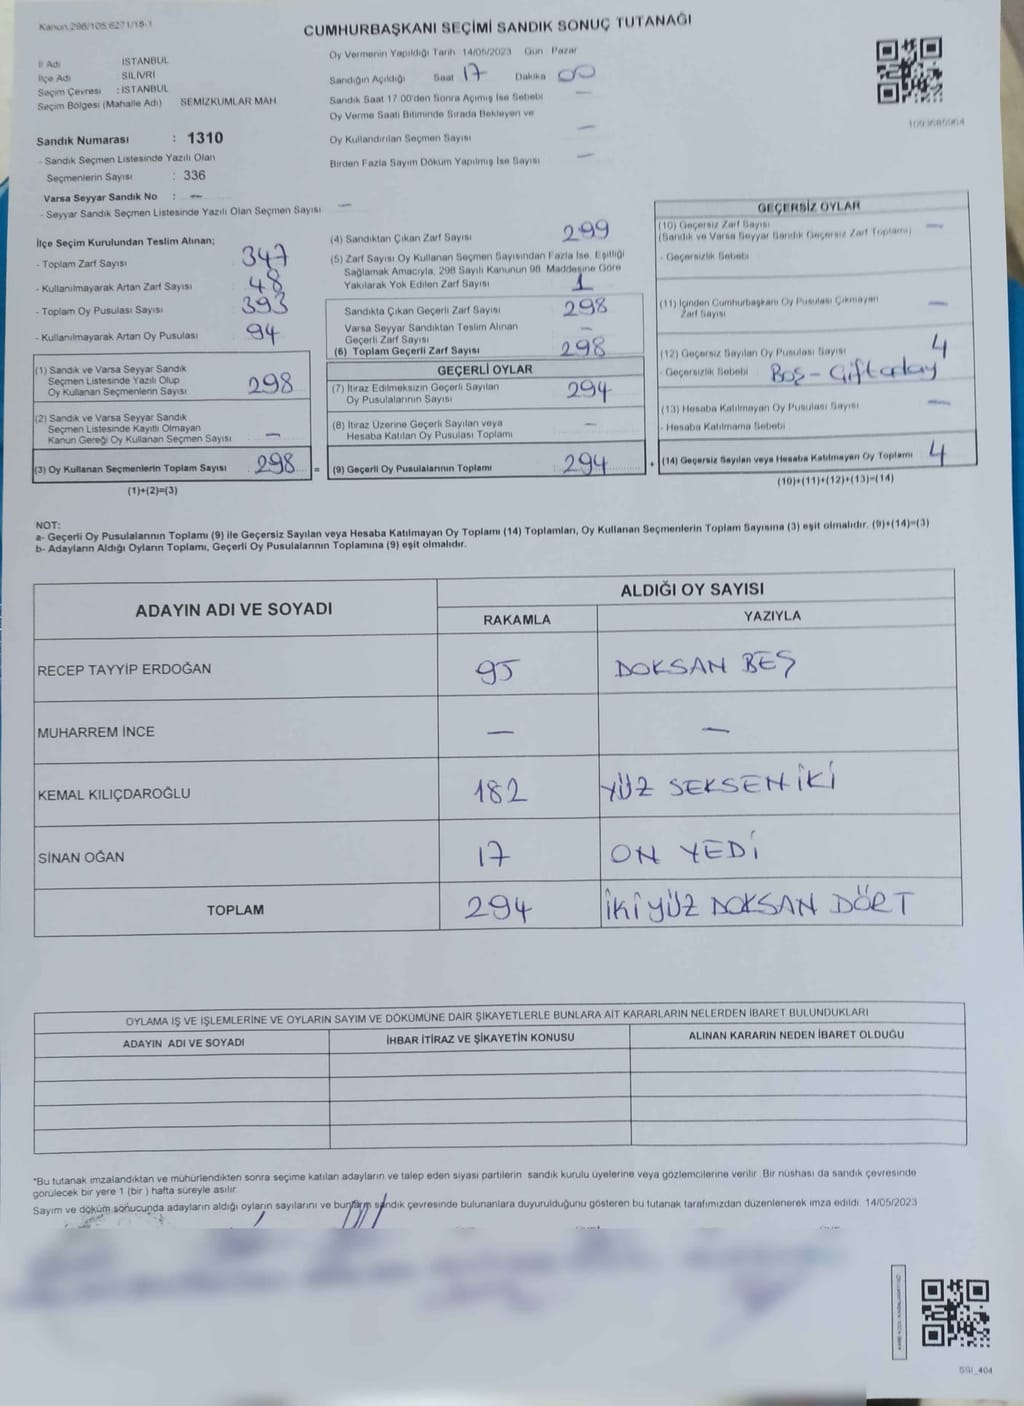 Kanun.298/105.6271/18-1
CUMHURBAŞKANI SEÇİMİ SANDIK SONUÇ TUTANAĞI
İl Adı İSTANBUL
İlçe Adı SİLİVRİ
Seçim Çevresi : İSTANBUL
Seçim Bölgesi (Mahalle Adı) SEMİZKUMLAR MAH.
Sandık Numarası : 1310
- Sandık Seçmen Listesinde Yazılı Olan
Seçmenlerin Sayısı : 336
Varsa Seyyar Sandık No : —
- Seyyar Sandık Seçmen Listesinde Yazılı Olan Seçmen Sayısı —
Oy Vermenin Yapıldığı Tarih 14/05/2023 Gün Pazar
Sandığın Açıldığı Saat 17 Dakika 00
Sandık Saat 17.00'den Sonra Açımış İse Sebebi —
Oy Verme Saati Bitiminde Sırada Bekleyen ve
Oy Kullandırılan Seçmen Sayısı —
Birden Fazla Sayım Döküm Yapılmış İse Sayısı —
İlçe Seçim Kurulundan Teslim Alınan;
- Toplam Zarf Sayısı 347
- Kullanılmayarak Artan Zarf Sayısı 48
- Toplam Oy Pusulası Sayısı 393
- Kullanılmayarak Artan Oy Pusulası 94
(1) Sandık ve Varsa Seyyar Sandık
Seçmen Listesinde Yazılı Olup
Oy Kullanan Seçmenlerin Sayısı 298
(2) Sandık ve Varsa Seyyar Sandık
Seçmen Listesinde Kayıtlı Olmayan
Kanun Gereği Oy Kullanan Seçmen Sayısı —
(3) Oy Kullanan Seçmenlerin Toplam Sayısı 298 =
(1)+(2)=(3)
(4) Sandıktan Çıkan Zarf Sayısı 299
(5) Zarf Sayısı Oy Kullanan Seçmen Sayısından Fazla İse, Eşitliği
Sağlamak Amacıyla, 298 Sayılı Kanunun 98. Maddesine Göre
Yakılarak Yok Edilen Zarf Sayısı 1
Sandıkta Çıkan Geçerli Zarf Sayısı 298
Varsa Seyyar Sandıktan Teslim Alınan
Geçerli Zarf Sayısı —
(6) Toplam Geçerli Zarf Sayısı 298
GEÇERLİ OYLAR
(7) İtiraz Edilmeksizin Geçerli Sayılan
Oy Pusulalarının Sayısı 294
(8) İtiraz Üzerine Geçerli Sayılan veya
Hesaba Katılan Oy Pusulası Toplamı —
(9) Geçerli Oy Pusulalarının Toplamı 294 +
GEÇERSİZ OYLAR
(10) Geçersiz Zarf Sayısı —
(Sandık ve Varsa Seyyar Sandık Geçersiz Zarf Toplamı)
- Geçersizlik Sebebi
(11) İçinden Cumhurbaşkanı Oy Pusulası Çıkmayan
Zarf Sayısı —
(12) Geçersiz Sayılan Oy Pusulası Sayısı 4
- Geçersizlik Sebebi Boş - Çift aday
(13) Hesaba Katılmayan Oy Pusulası Sayısı —
- Hesaba Katılmama Sebebi
(14) Geçersiz Sayılan veya Hesaba Katılmayan Oy Toplamı 4
(10)+(11)+(12)+(13)=(14)
NOT:
a- Geçerli Oy Pusulalarının Toplamı (9) ile Geçersiz Sayılan veya Hesaba Katılmayan Oy Toplamı (14) Toplamları, Oy Kullanan Seçmenlerin Toplam Sayısına (3) eşit olmalıdır. (9)+(14)=(3)
b- Adayların Aldığı Oyların Toplamı, Geçerli Oy Pusulalarının Toplamına (9) eşit olmalıdır.
ADAYIN ADI VE SOYADI
ALDIĞI OY SAYISI
RAKAMLA YAZIYLA
RECEP TAYYİP ERDOĞAN 95 DOKSAN BEŞ
MUHARREM İNCE — —
KEMAL KILIÇDAROĞLU 182 YÜZ SEKSEN İKİ
SİNAN OĞAN 17 ON YEDİ
TOPLAM 294 İKİ YÜZ DOKSAN DÖRT
OYLAMA İŞ VE İŞLEMLERİNE VE OYLARIN SAYIM VE DÖKÜMÜNE DAİR ŞİKAYETLERLE BUNLARA AİT KARARLARIN NELERDEN İBARET BULUNDUKLARI
ADAYIN ADI VE SOYADI İHBAR İTİRAZ VE ŞİKAYETİN KONUSU ALINAN KARARIN NEDEN İBARET OLDUĞU
*Bu tutanak imzalandıktan ve mühürlendikten sonra seçime katılan adayların ve talep eden siyasi partilerin sandık kurulu üyelerine veya gözlemcilerine verilir. Bir nüshası da sandık çevresinde
görülecek bir yere 1 (bir ) hafta süreyle asılır.
Sayım ve döküm sonucunda adayların aldığı oyların sayılarını ve bunların sandık çevresinde bulunanlara duyurulduğunu gösteren bu tutanak tarafımızdan düzenlenerek imza edildi. 14/05/2023
SSI_404